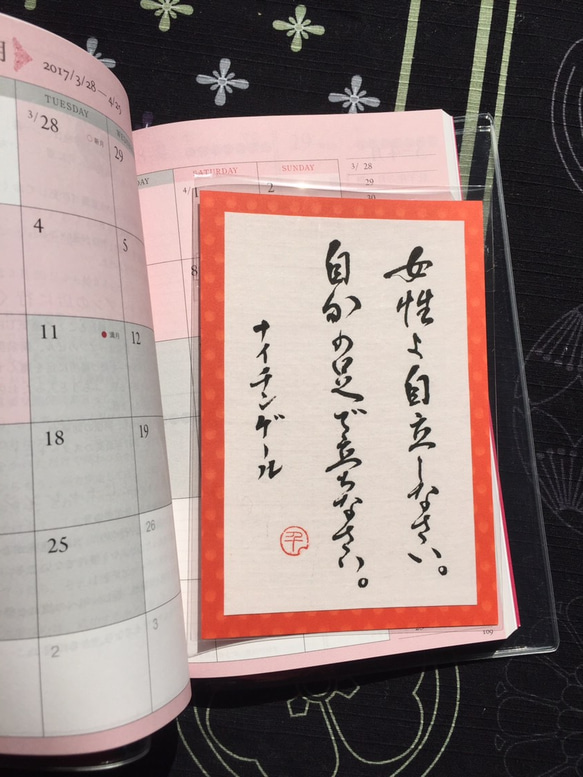 月
2017/3/28 — 4/25
TUESDAY
3/28
29
4
5
11
満月
12
18
19
25
26
2
3
DAY
SATURDAY
SUNDAY
4/1
2
8
3/ 28
29
30
女性よ自立しなさい。
自分の足で立ちなさい。
ナイチンゲール
平
109